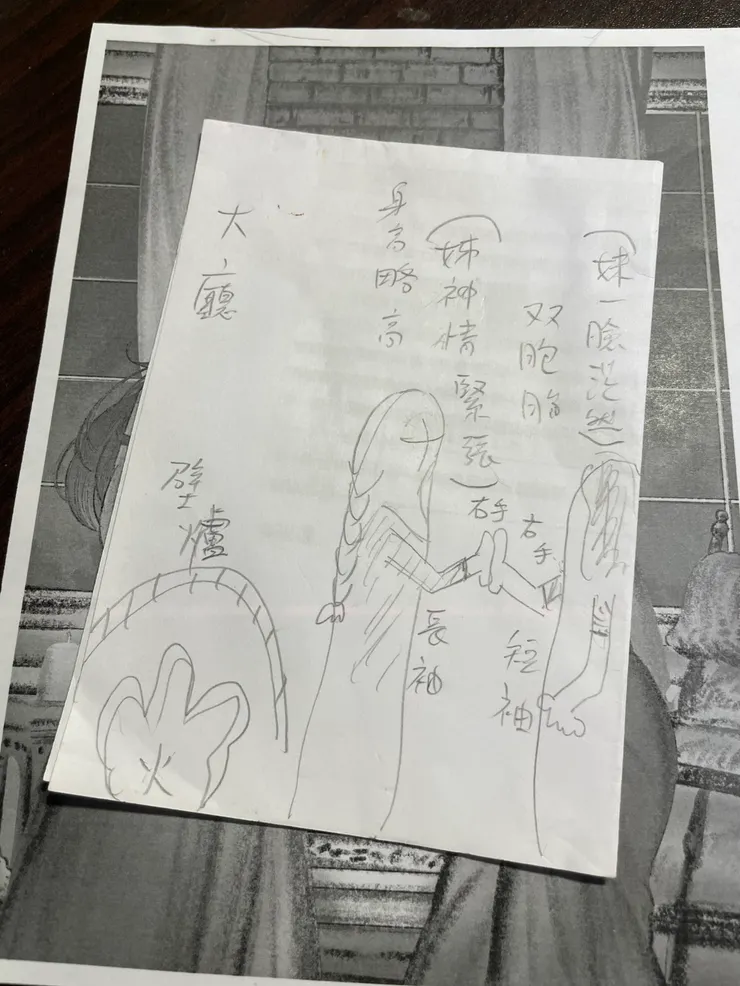 (妹一臉茫然)
双胞胎
(姊神情緊張)
身高略高
大廳
右手
右手
短袖
長袖
壁爐
火